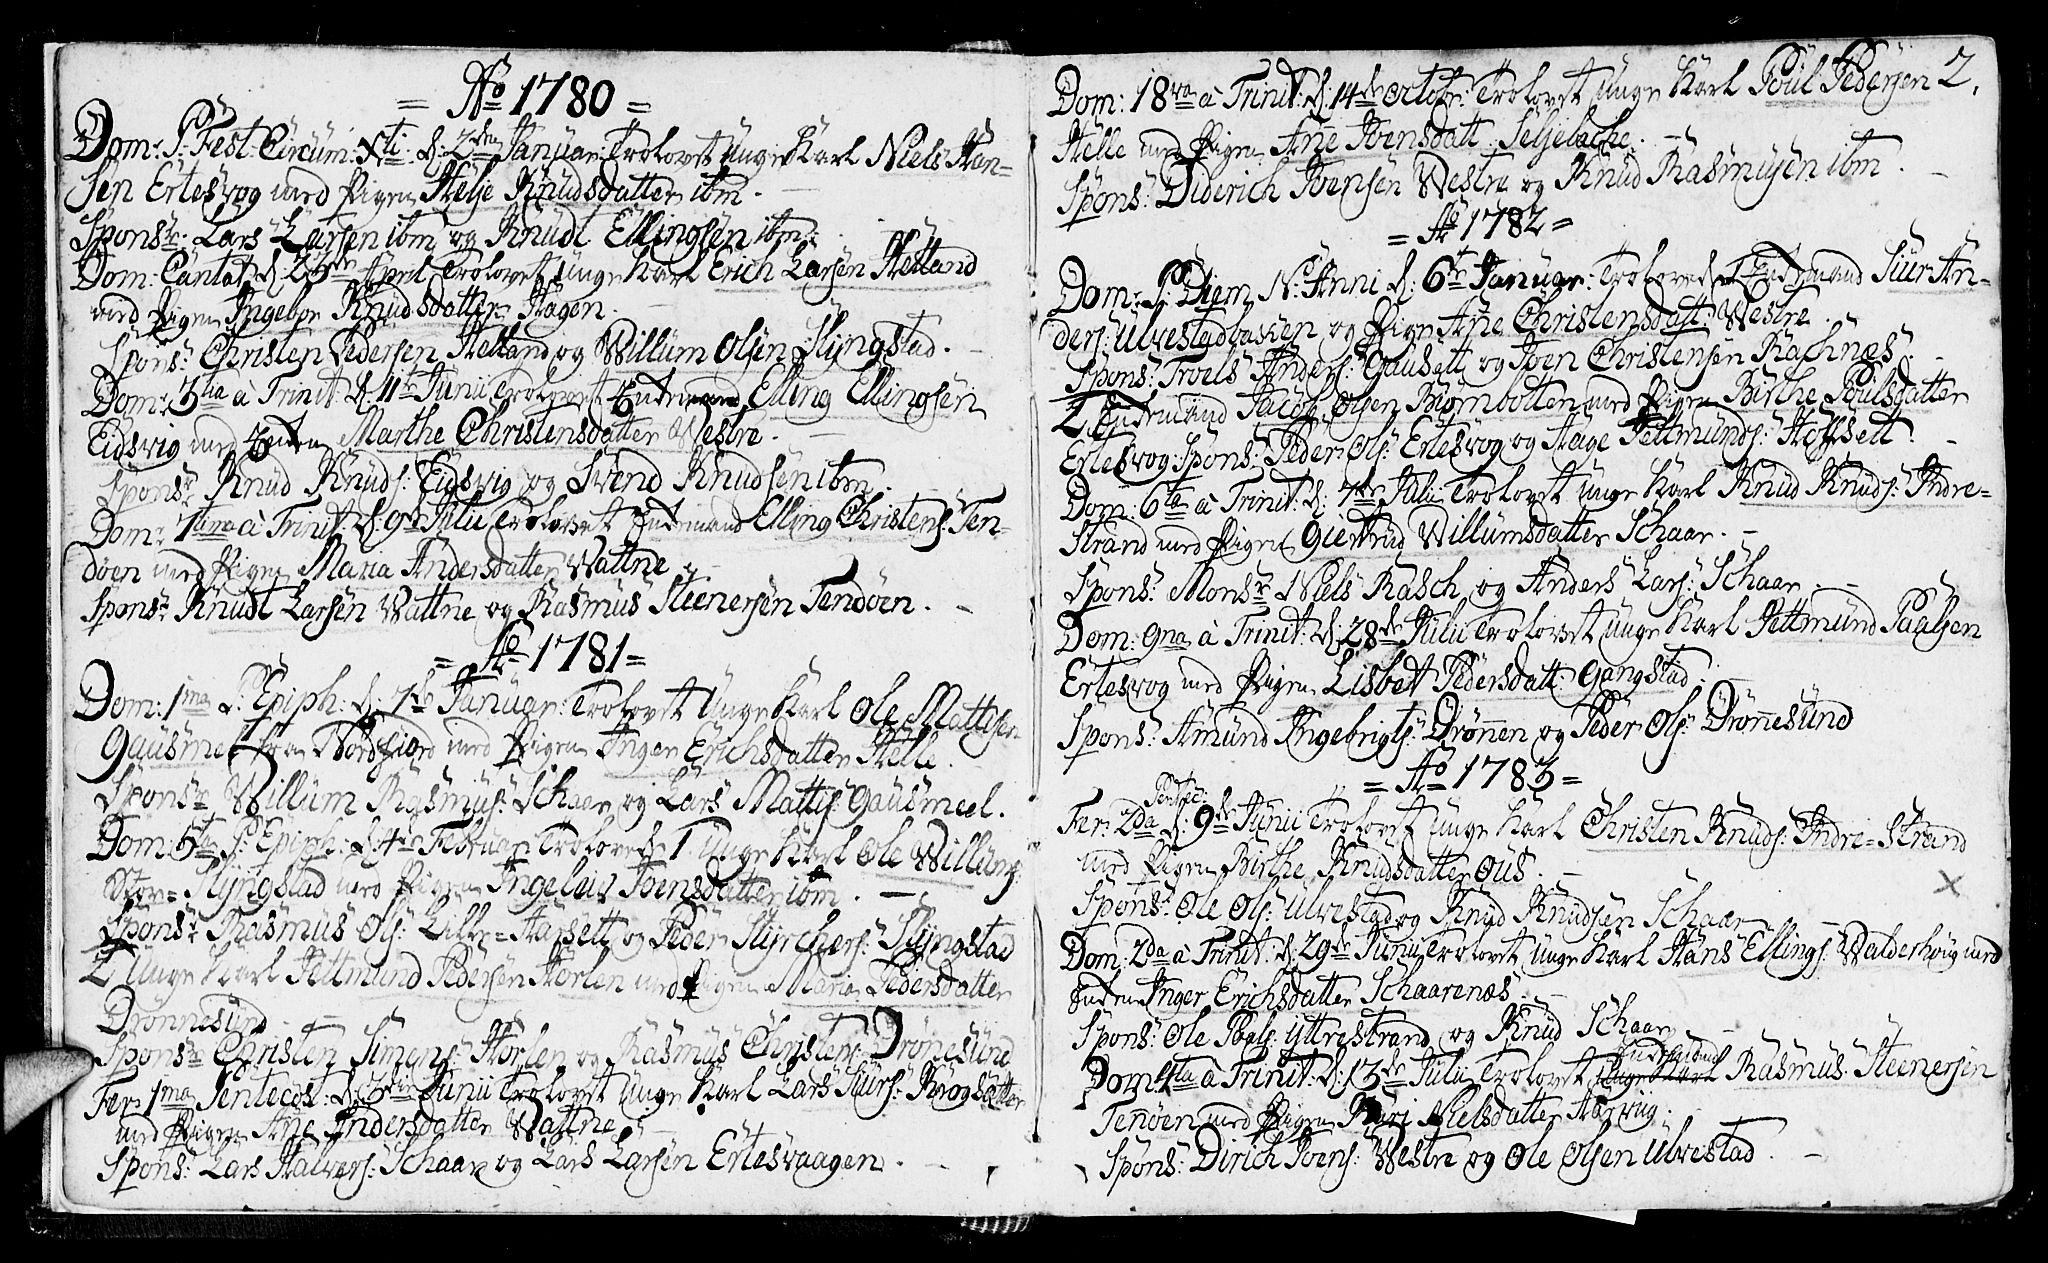 = Aõ 1780 =
Dom: P: Fest. Circum: Xti d: 2den Januar: Trolovet unge Karl Niels Han-
sen Ertesvog med Pigen Helje Knudsdatter ibm.
Sponsr: Lars Larsen ibm og Knudt Ellingsen ibm.
Dom: Cantat: d: 23de April Trolovet unge Karl Erich Larsen Helland
med Pigen Ingebor Knudsdatter Hagen.
Sponsr: Christen Pedersen Helland og Willum Olsen Slyngstad.
Dom: 3tia à Trinit: d: 11te Junii Trolovet Enkemand Elling Ellingsen
Eidsvig med Enken Marthe Christensdatter Westre.
Sponsr: Knud Knuds: Eidsvig og Svend Knudsen ibm.
Dom: 7tima à Trinit: d: 9de Julii Trolovet Enkemand Elling Christens: Ten-
döen med Pigen Maria Andersdatter Vattne.
Sponsr: Knudt Larsen Vattne og Rasmus Steenersen Tendöen.
= Aõ 1781 =
Dom: 1ma P: Epiph: d: 7de Januar: Trolovet Unge Karl Ole Mattisen
Gausmel fra Nordfiord med Pigen Inger Erichsdatter Helle.
Sponsr Willum Rasmus: Schaar og Lars Mattis: Gausmeel.
Dom: 5ta P: Epiph: d: 4de Februar: Trolovede 1 Unge Karl Ole Willums:
Stor-Slyngstad med Pigen Ingeleiv Joensdatter ibm.
Sponsr Rasmus Ols: Lille-Hafsett og Peder Styrchers: Slyngstad
2 Unge Karl Hettmund Pedersen Horlen med Pigen Maria Pedersdatter
Drönnesund
Sponsr: Christen Simons: Horlen og Rasmus Christens: Drönesund
Fer: 1ma Pentecost: d: 3die Junii Trolovet Unge Karl Lars Siurs: Krogsætter
med Pigen Ane Andersdatter Vattne
Spons: Lars Halvors: Schaar og Lars Larsen Ertesvaagen.
2.
Dom: 18va à Trinit: d: 14de Octobr: Trolovet unge Karl Poul Pedersen
Helle med Pigen Ane Joensdatt: Seljebache.
Spons: Diderich Joensen Westre og Knud Rasmusen ibm.
= Aõ 1782 =
Dom: P: Diem N: Anni d: 6te Januar: Trolovede 1 Enkemand Siur An-
ders: Ulvestadbakken og Pige Ane Christensdatt: Westre.
Spons: Troels Anders: Gausett og Joen Christensen Rachnæs.
2 Enkemand Jacob Olsen Biörnbotten med Pigen Birthe Poulsdatter
Ertesvog Spons: Peder Ols: Ertesvog og Hage Pettmunds: Hoffsett.
Dom: 6ta à Trinit: d: 7de Julii Trolovet unge Karl Knud Knuds: Indre-
Strand med Pigen Giertrud Willumsdatter Schaar.
Sponsr: Monsr: Niels Rasch og Anders Lars: Schaar.
Dom: 9na à Trinit: d: 28de Julii Trolovet unge Karl Pettmund Paalsen
Ertesvog med Pigen Lisbett Pedersdatt: Gangstad.
Spons: Amund Ingebrigts: Drönen og Peder Ols: Drönnesund
= Aõ 1783 =
Pentec:
Fer: 2da d: 9de Junii Trolovet unge Karl Christen Knuds: Indre-Strand
med Pigen Birthe Knudsdatter Ous.
Spons: Ole Ols: Ulvestad og Knud Knudsen Schaar
Dom: 2da à Trinit: d: 29de Junii Trolovet unge Karl Hans Ellings: Walderhoug med
Enken Inger Erichsdatter Schaarenæs
Spons: Ole Paals: Yttrestrand og Knud Schaar
Enkemand
Dom: 4ta à Trinit: d: 13de Julii Trolovet unge Karl Rasmus Steenersen
Tenöen med Pigen Kari Nielsdatter Aarviig.
Spons: Dirich Joens: Westre og Ole Olsen Ulvestad.